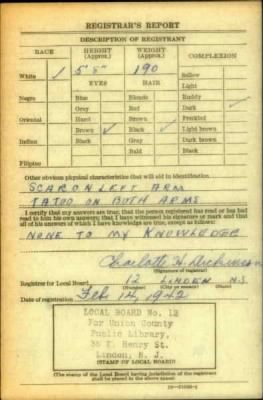 REGISTRAR'S REPORT
DESCRIPTION OF REGISTRANT
RACE HEIGHT (Approx.) WEIGHT (Approx.) COMPLEXION
White ✓ 5' 8" 190 Sallow
EYES HAIR Light
Negro Blue Blonde Ruddy
Gray Red Dark ✓
Oriental Hazel Brown Freckled
Brown ✓ Black ✓ Light brown
Indian Black Gray Dark brown
Bald Black
Filipino
Other obvious physical characteristics that will aid in identification
SCAR ON LEFT ARM
TATOO ON BOTH ARMS
I certify that my answers are true; that the person registered has read or has had
read to him his own answers; that I have witnessed his signature or mark and that
all of his answers of which I have knowledge are true, except as follows:
NONE TO MY KNOWLEDGE
Charlotte H. Dickinson
(Signature of registrar)
Registrar for Local Board 12 LINDEN N.J.
(Number) (City or county) (State)
Date of registration Feb 16, 1942
LOCAL BOARD No. 12
For Union County
Public Library,
35 E. Henry St.
Linden, N. J.
(STAMP OF LOCAL BOARD)
(The stamp of the Local Board having jurisdiction of the registrant
shall be placed in the above space.)